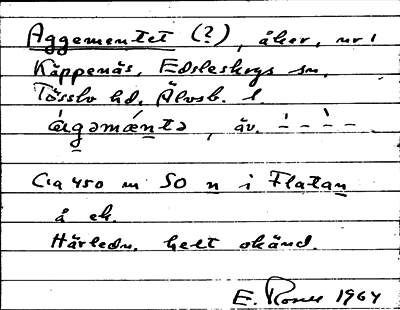 Aggementet (?), åker, nr 1
Käppenäs, Edsleskogs sn,
Tössbo hd, Älvsb. l.
, äv.
Ca 450 m SO n i Flatan
å ek.
Härledn. helt okänd.
E. 1964